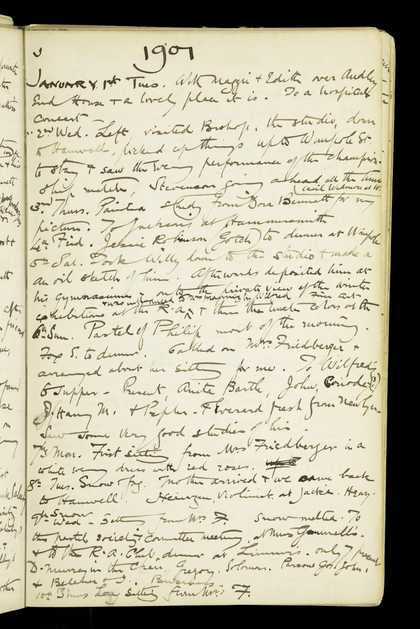 1901
January 1st Tues. With Maggie & Edith over Audley
End House & a lovely place it is. To a hospital
concert
2nd Wed. Left, visited Bishop, the studio, down
to Hanwell, picked up things up to Walpole St
to stay & saw the evening performance of the champion-
ship matches, Stevenson going ahead all the time
3rd Thurs. Painted study from Dora Bennett for my
picture. To Jackson's at Hammersmith
4th Frid. Jessie Robinson to dinner at Walpole
5th Sat. Took Willy down to the studio & make a
an oil sketch of him. Afterwards deposited him at
his Gymnasium & on to the private view of the winter
exhibitions at the R.A. & then the water colors at the
6th Sun. Pastel of Philip most of the morning.
Fox S. to dinner. Called on Mrs Friedberger &
arranged about her sitting for me. To Wilfred's
to supper - Present Anita Barth, John,
Harry M. & Pepler - & Everard fresh from Newlyn
Saw some very good studies of his
7th Mon. First sitting from Mrs Friedberger in a
white evening dress with red roses.
8th Tues. Snow fog. Mother arrived & we came back
to Hanwell. violinist at Jackson
9th Wed - Sitting from Mrs F Snow melted. To
the pastel society Committee meeting, at Miss
& to the R.A. Club dinner at only 7 present
D. Murray in the Chair, Gregory, Solomon, Parsons, John,
& Belcher & I.
10th Thurs Long sitting from Mrs F.